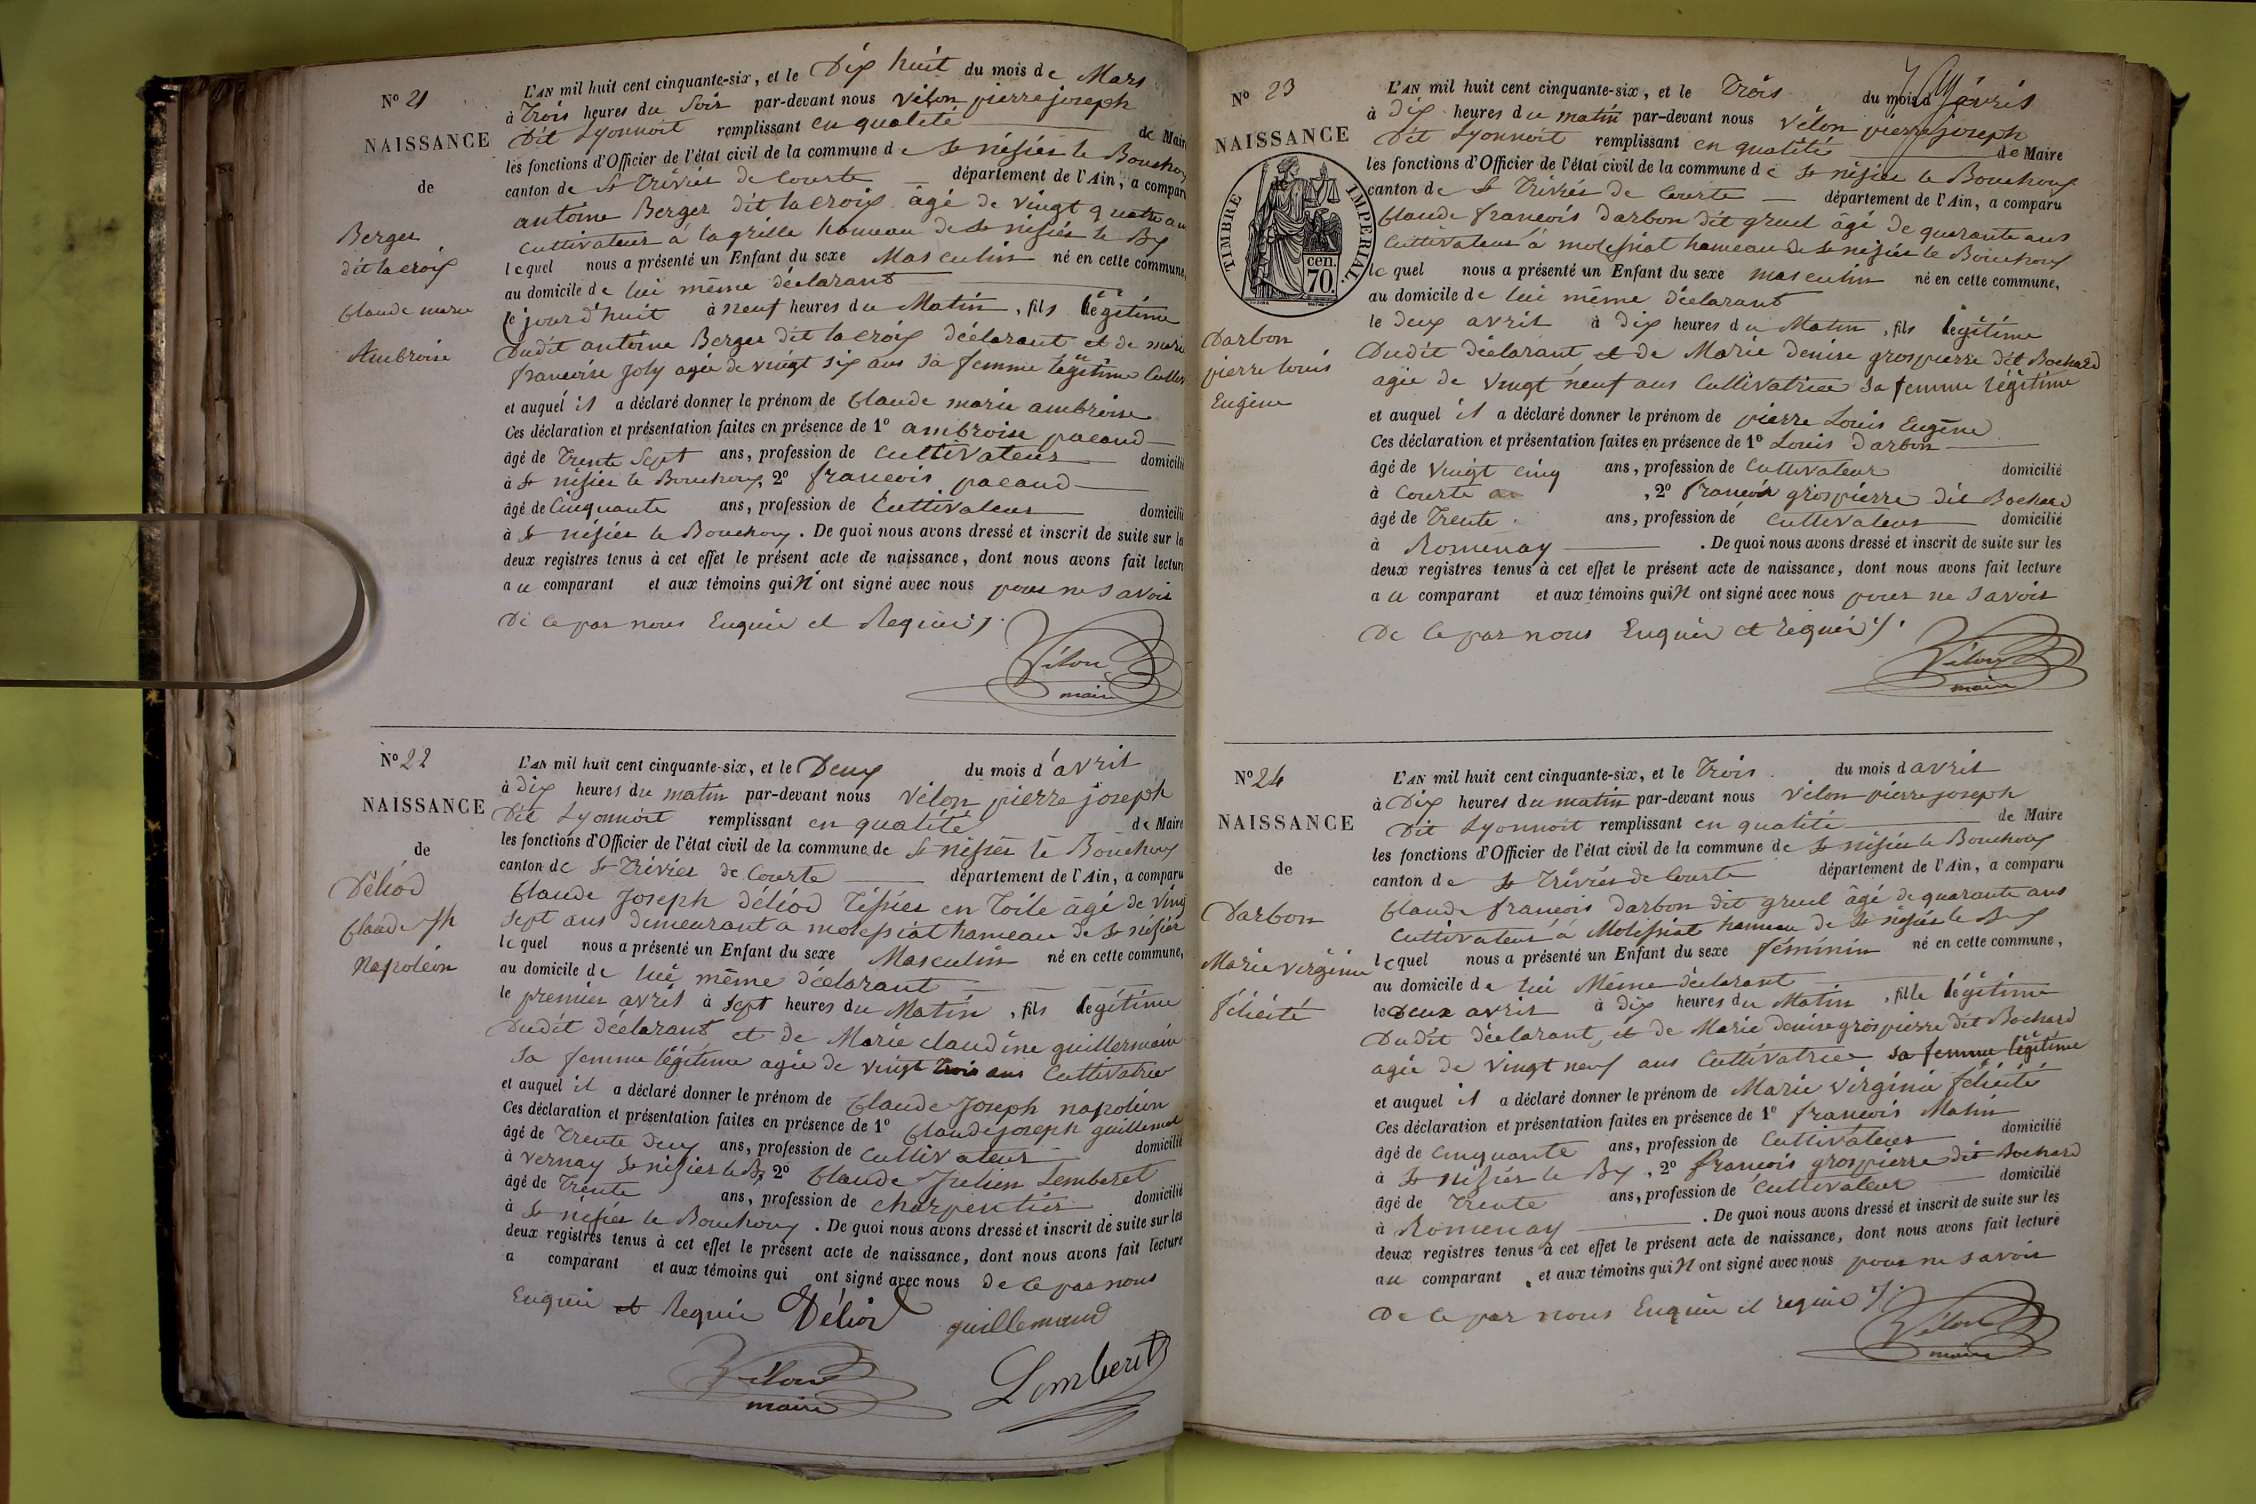 N° 21
NAISSANCE
de
Berger
dit lacroix
Claude marie
Ambroise
L'AN mil huit cent cinquante-six, et le Dix huit du mois de Mars
à Trois heures du Soir par-devant nous Vélon pierre joseph
Dit Lyonnoit remplissant en qualité de Maire
les fonctions d'Officier de l'état civil de la commune de St nisier le Bouchoux
canton de St Trivier de Courte département de l'Ain, a comparu
antoine Berger dit lacroix âgé de vingt quatre ans
Cultivateur à la grille hameau de St nisier le Bx
lequel nous a présenté un Enfant du sexe Masculin né en cette commune,
au domicile de lui même déclarant
le jourd'huit à neuf heures du Matin, fils légitime
Dudit antoine Berger dit lacroix déclarant et de marie
francoise Joly agée de vingt six ans sa femme légitime Cultiv
et auquel il a déclaré donner le prénom de Claude marie ambroise
Ces déclaration et présentation faites en présence de 1° ambroise pacaud
âgé de Trente Sept ans, profession de Cultivateur domicilié
à St nisier le Bouchoux, 2° francois pacaud
âgé de Cinquante ans, profession de Cultivateur domicilié
à St nisier le Bouchoux. De quoi nous avons dressé et inscrit de suite sur les
deux registres tenus à cet effet le présent acte de naissance, dont nous avons fait lecture
au comparant et aux témoins qui N'ont signé avec nous pour ne savoir
De ce par nous Enquis et Requis ./.
Vélon
maire
N° 22
NAISSANCE
de
Déliod
Claude Jph
Napoléon
L'AN mil huit cent cinquante-six, et le Deux du mois d'avril
à Dix heures du matin par-devant nous Vélon pierre joseph
Dit Lyonnoit remplissant en qualité de Maire
les fonctions d'Officier de l'état civil de la commune de St nisier le Bouchoux
canton de St Trivier de Courte département de l'Ain, a comparu
Claude Joseph déliod Tissier en Toile âgé de Vingt
Sept ans demeurant a molessiat hameau de St nisier
lequel nous a présenté un Enfant du sexe Masculin né en cette commune,
au domicile de lui même déclarant
le premier avril à sept heures du Matin, fils légitime
Dudit déclarant et de Marie claudine guillermain
sa femme légitime agée de vingt trois ans Cultivatrice
et auquel il a déclaré donner le prénom de Claude Joseph napoléon
Ces déclaration et présentation faites en présence de 1° Claude joseph guillemaud
âgé de Trente Deux ans, profession de Cultivateur domicilié
à Vernay St nisier le Bx 2° Claude Julien Lemberet
âgé de Trente ans, profession de charpentier domicilié
à St nisier le Bouchoux. De quoi nous avons dressé et inscrit de suite sur les
deux registres tenus à cet effet le présent acte de naissance, dont nous avons fait lecture
a comparant et aux témoins qui ont signé avec nous de ce par nous
Enquis et Requis Déliod guillemaud
Vélon
maire
Lemberet
N° 23
NAISSANCE
TIMBRE IMPERIAL.
cen.
70.
Darbon
pierre louis
Eugène
L'AN mil huit cent cinquante-six, et le Trois du mois d'avril
à dix heures du matin par-devant nous Vélon pierre joseph
Dit Lyonnoit remplissant en qualité de Maire
les fonctions d'Officier de l'état civil de la commune de St nisier le Bouchoux
canton de St Trivier de Courte département de l'Ain, a comparu
Claude francois Darbon dit greul âgé de quarante ans
Cultivateur à molessiat hameau de St nisier le Bouchoux
lequel nous a présenté un Enfant du sexe masculin né en cette commune,
au domicile de lui même déclarant
le deux avril à dix heures du Matin, fils légitime
Dudit déclarant et de Marie denise grospierre dit Bochard
agée de vingt neuf ans Cultivatrice sa femme légitime
et auquel il a déclaré donner le prénom de pierre Louis Eugène
Ces déclaration et présentation faites en présence de 1° Louis Darbon
âgé de vingt cinq ans, profession de Cultivateur domicilié
à Courte, 2° francois grospierre dit Bochard
âgé de Trente ans, profession de Cultivateur domicilié
à Romenay. De quoi nous avons dressé et inscrit de suite sur les
deux registres tenus à cet effet le présent acte de naissance, dont nous avons fait lecture
au comparant et aux témoins qui N ont signé avec nous pour ne savoir
De ce par nous Enquis et requis ./.
Vélon
maire
N° 24
NAISSANCE
de
Darbon
Marie virginie
félicité
L'AN mil huit cent cinquante-six, et le Trois du mois d avril
à Dix heures du matin par-devant nous Vélon pierre joseph
Dit Lyonnoit remplissant en qualité de Maire
les fonctions d'Officier de l'état civil de la commune de St nisier le Bouchoux
canton de St Trivier de Courte département de l'Ain, a comparu
Claude francois Darbon dit greul âgé de quarante ans
Cultivateur à Molissiat hameau de St nisier le Bx
lequel nous a présenté un Enfant du sexe féminin né en cette commune,
au domicile de lui Même déclarant
le Deux avril à dix heures du Matin, fille légitime
Dudit déclarant, et de Marie denise grospierre dit Bochard
agée de vingt neuf ans Cultivatrice sa femme légitime
et auquel il a déclaré donner le prénom de Marie virginie félicité
Ces déclaration et présentation faites en présence de 1° francois Matin
âgé de Cinquante ans, profession de Cultivateur domicilié
à St nisier le Bx, 2° francois grospierre dit Bochard
âgé de Trente ans, profession de Cultivateur domicilié
à Romenay. De quoi nous avons dressé et inscrit de suite sur les
deux registres tenus à cet effet le présent acte de naissance, dont nous avons fait lecture
au comparant et aux témoins qui N ont signé avec nous pour ne savoir
De ce par nous Enquis et requis ./.
Vélon
maire